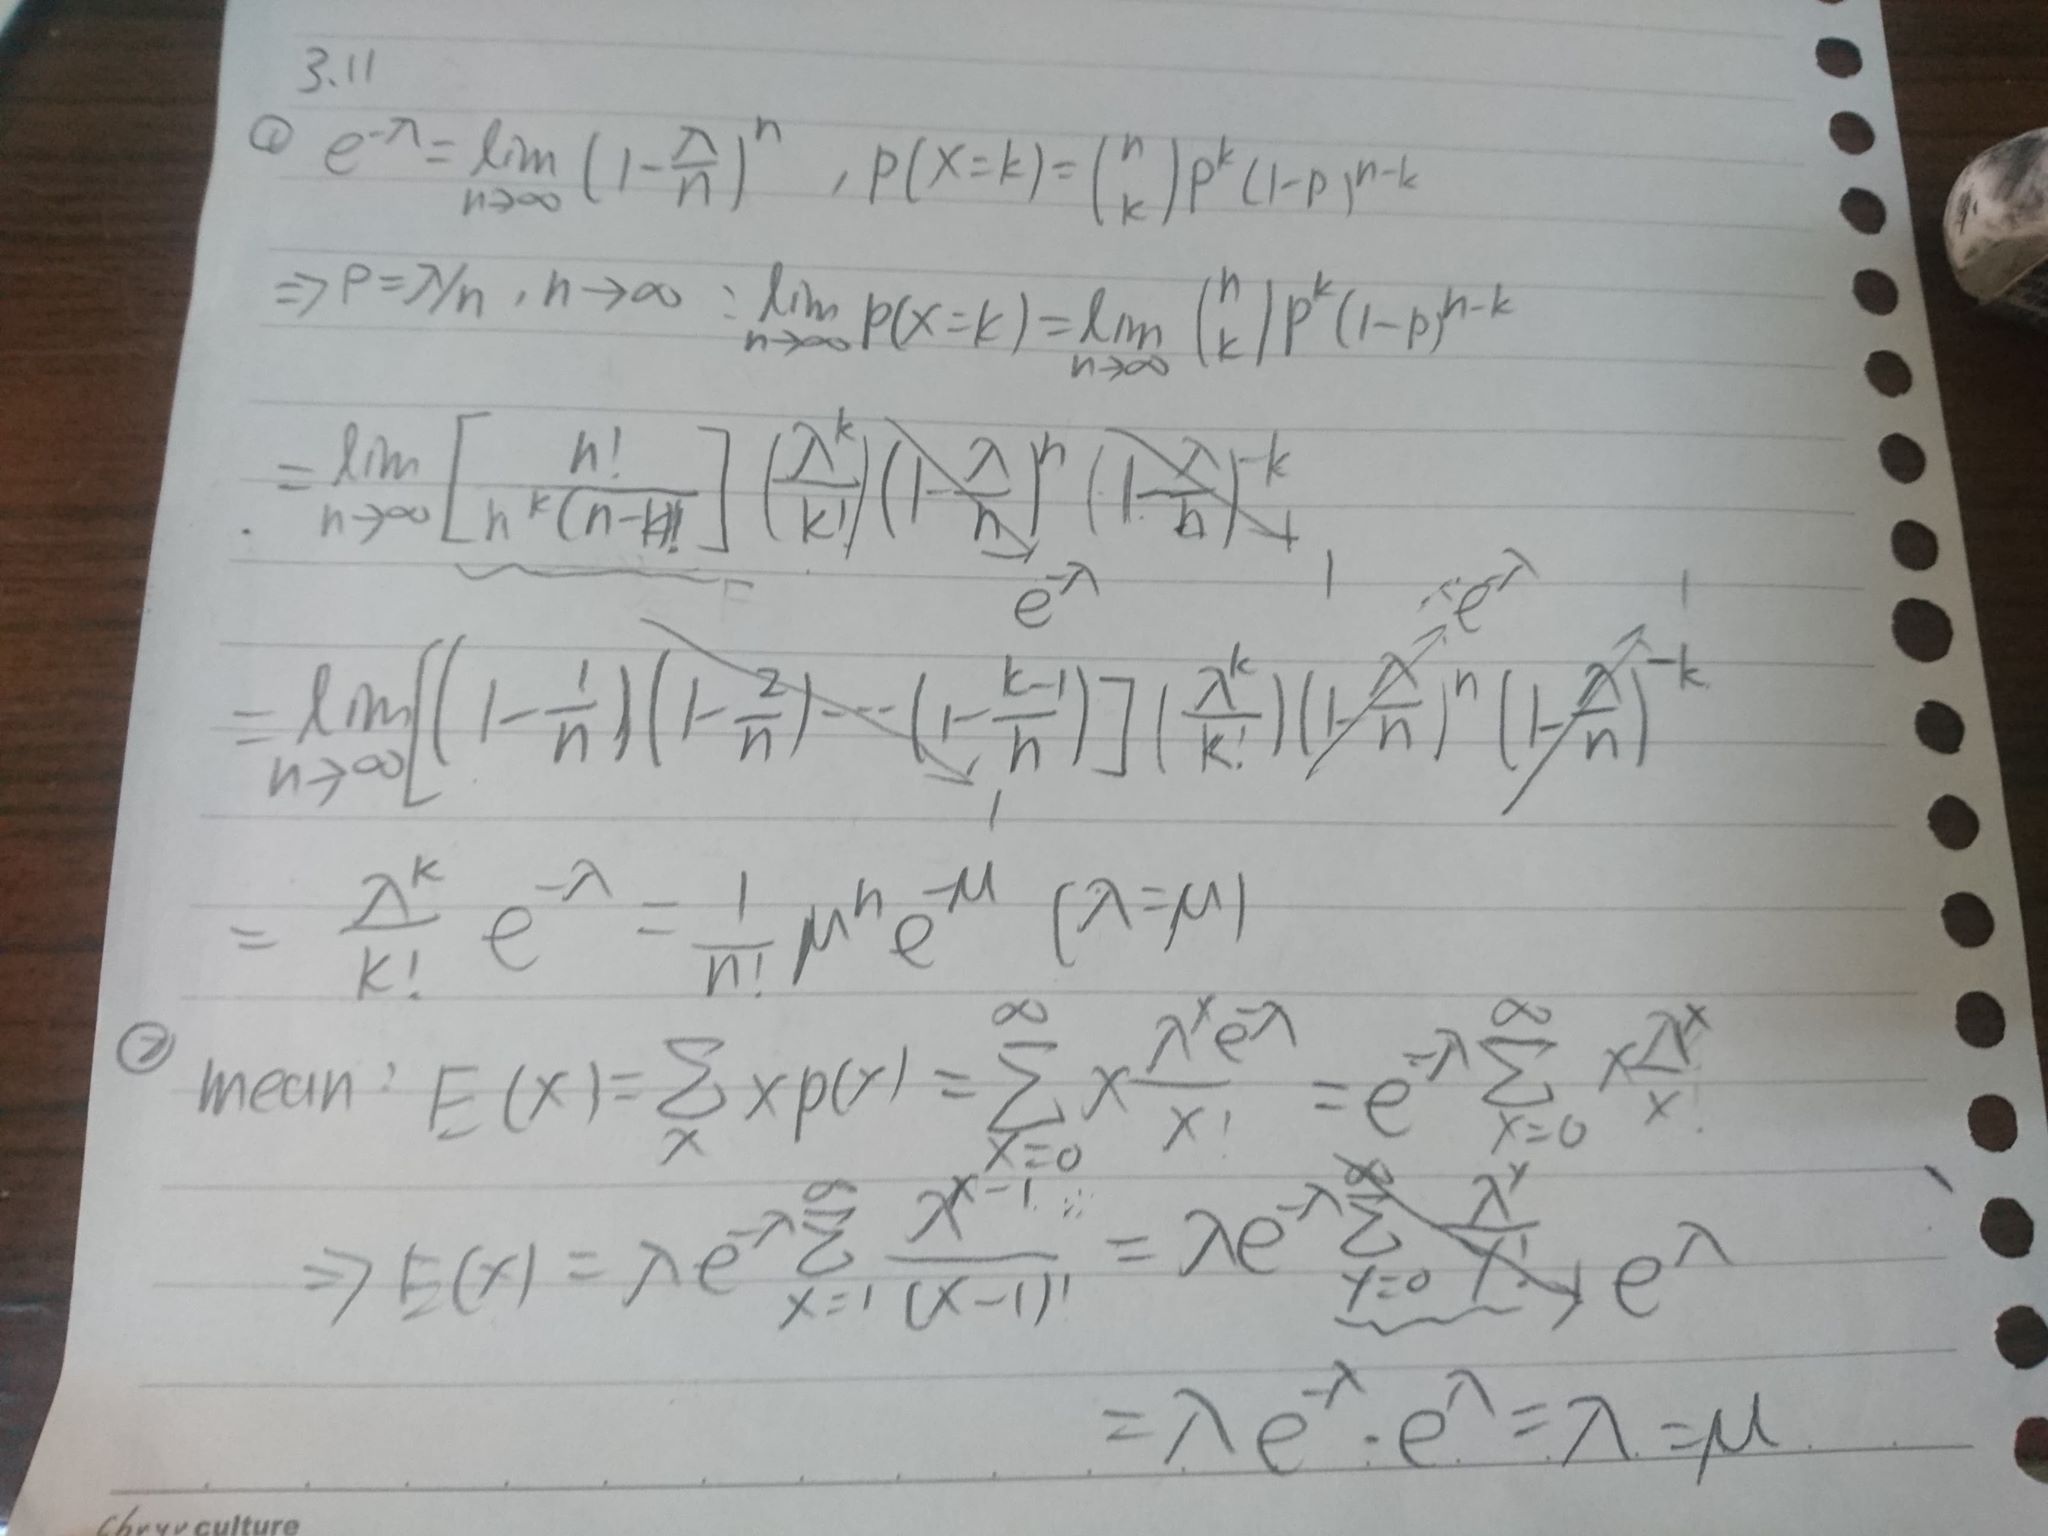 3.11
① e^{-λ} = lim_{n→∞} (1 - λ/n)^n , p(X=k) = (n k) p^k (1-p)^{n-k}
⇒ P = λ/n , n→∞ : lim_{n→∞} p(X=k) = lim_{n→∞} (n k) p^k (1-p)^{n-k}
= lim_{n→∞} [n! / n^k (n-k)!] (λ^k / k!) (1 - λ/n)^n (1 - λ/n)^{-k}
e^{-λ} 1 e^{-λ} 1
= lim_{n→∞} [(1 - 1/n)(1 - 2/n) --- (1 - k-1/n)] (λ^k / k!) (1 - λ/n)^n (1 - λ/n)^{-k}
1
= λ^k / k! e^{-λ} = 1/n! μ^n e^{-μ} (λ=μ)
② mean : E(x) = Σ_x x p(x) = Σ_{x=0}^∞ x λ^x e^{-λ} / x! = e^{-λ} Σ_{x=0}^∞ x λ^x / x!
⇒ E(x) = λ e^{-λ} Σ_{x=1}^∞ λ^{x-1} / (x-1)! = λ e^{-λ} Σ_{y=0}^∞ λ^y / y! e^λ
= λ e^{-λ} · e^λ = λ = μ
culture